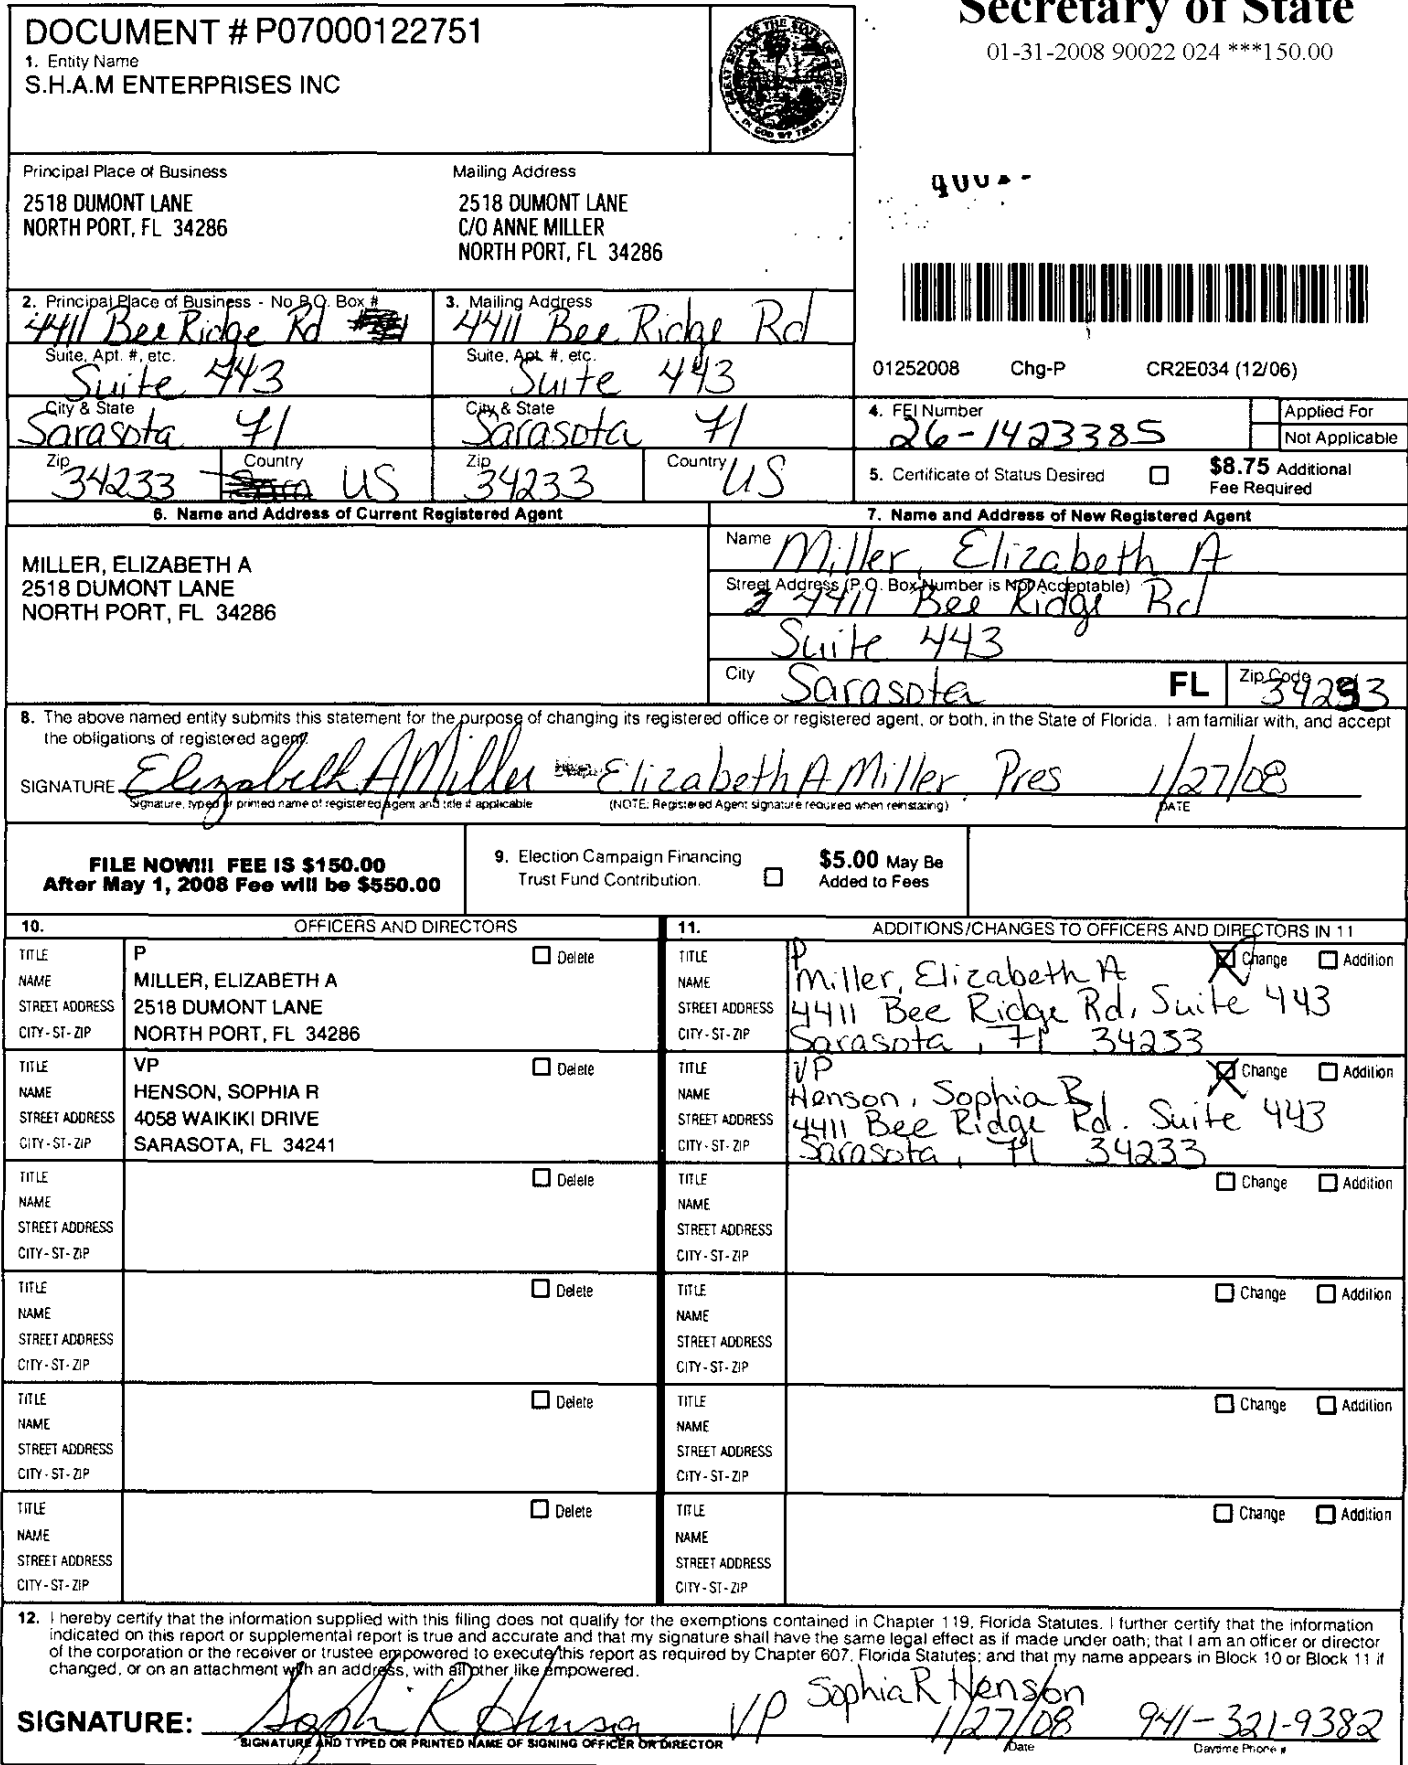 Secretary of State
01-31-2008 90022 024 ***150.00
DOCUMENT # P07000122751
1. Entity Name
S.H.A.M ENTERPRISES INC
Principal Place of Business
2518 DUMONT LANE
NORTH PORT, FL 34286
Mailing Address
2518 DUMONT LANE
C/O ANNE MILLER
NORTH PORT, FL 34286
2. Principal Place of Business - No P.O. Box #
4411 Bee Ridge Rd
Suite, Apt. #, etc.
Suite 443
City & State
Sarasota Fl
Zip
34233
Country
US
3. Mailing Address
4411 Bee Ridge Rd
Suite, Apt. #, etc.
Suite 443
City & State
Sarasota Fl
Zip
34233
Country
US
01252008 Chg-P CR2E034 (12/06)
4. FEI Number
26-1423385
Applied For
Not Applicable
5. Certificate of Status Desired
$8.75 Additional
Fee Required
6. Name and Address of Current Registered Agent
MILLER, ELIZABETH A
2518 DUMONT LANE
NORTH PORT, FL 34286
7. Name and Address of New Registered Agent
Name
Miller, Elizabeth A
Street Address (P.O. Box Number is Not Acceptable)
4411 Bee Ridge Rd
Suite 443
City
Sarasota
FL
Zip Code
34233
8. The above named entity submits this statement for the purpose of changing its registered office or registered agent, or both, in the State of Florida. I am familiar with, and accept
the obligations of registered agent.
SIGNATURE Elizabeth A Miller Elizabeth A Miller, Pres 1/27/08
Signature, typed or printed name of registered agent and title if applicable (NOTE: Registered Agent signature required when reinstating) DATE
FILE NOW!!! FEE IS $150.00
After May 1, 2008 Fee will be $550.00
9. Election Campaign Financing
Trust Fund Contribution.
$5.00 May Be
Added to Fees
10. OFFICERS AND DIRECTORS
TITLE P Delete
NAME MILLER, ELIZABETH A
STREET ADDRESS 2518 DUMONT LANE
CITY-ST-ZIP NORTH PORT, FL 34286
TITLE VP Delete
NAME HENSON, SOPHIA R
STREET ADDRESS 4058 WAIKIKI DRIVE
CITY-ST-ZIP SARASOTA, FL 34241
TITLE Delete
NAME
STREET ADDRESS
CITY-ST-ZIP
TITLE Delete
NAME
STREET ADDRESS
CITY-ST-ZIP
TITLE Delete
NAME
STREET ADDRESS
CITY-ST-ZIP
TITLE Delete
NAME
STREET ADDRESS
CITY-ST-ZIP
11. ADDITIONS/CHANGES TO OFFICERS AND DIRECTORS IN 11
TITLE P Change Addition
NAME Miller, Elizabeth A
STREET ADDRESS 4411 Bee Ridge Rd, Suite 443
CITY-ST-ZIP Sarasota, Fl 34233
TITLE VP Change Addition
NAME Henson, Sophia R
STREET ADDRESS 4411 Bee Ridge Rd. Suite 443
CITY-ST-ZIP Sarasota, Fl 34233
TITLE Change Addition
NAME
STREET ADDRESS
CITY-ST-ZIP
TITLE Change Addition
NAME
STREET ADDRESS
CITY-ST-ZIP
TITLE Change Addition
NAME
STREET ADDRESS
CITY-ST-ZIP
TITLE Change Addition
NAME
STREET ADDRESS
CITY-ST-ZIP
12. I hereby certify that the information supplied with this filing does not qualify for the exemptions contained in Chapter 119, Florida Statutes. I further certify that the information
indicated on this report or supplemental report is true and accurate and that my signature shall have the same legal effect as if made under oath; that I am an officer or director
of the corporation or the receiver or trustee empowered to execute this report as required by Chapter 607, Florida Statutes; and that my name appears in Block 10 or Block 11 if
changed, or on an attachment with an address, with all other like empowered.
SIGNATURE: Sophia R Henson VP Sophia R Henson 1/27/08 941-321-9382
SIGNATURE AND TYPED OR PRINTED NAME OF SIGNING OFFICER OR DIRECTOR Date Daytime Phone #